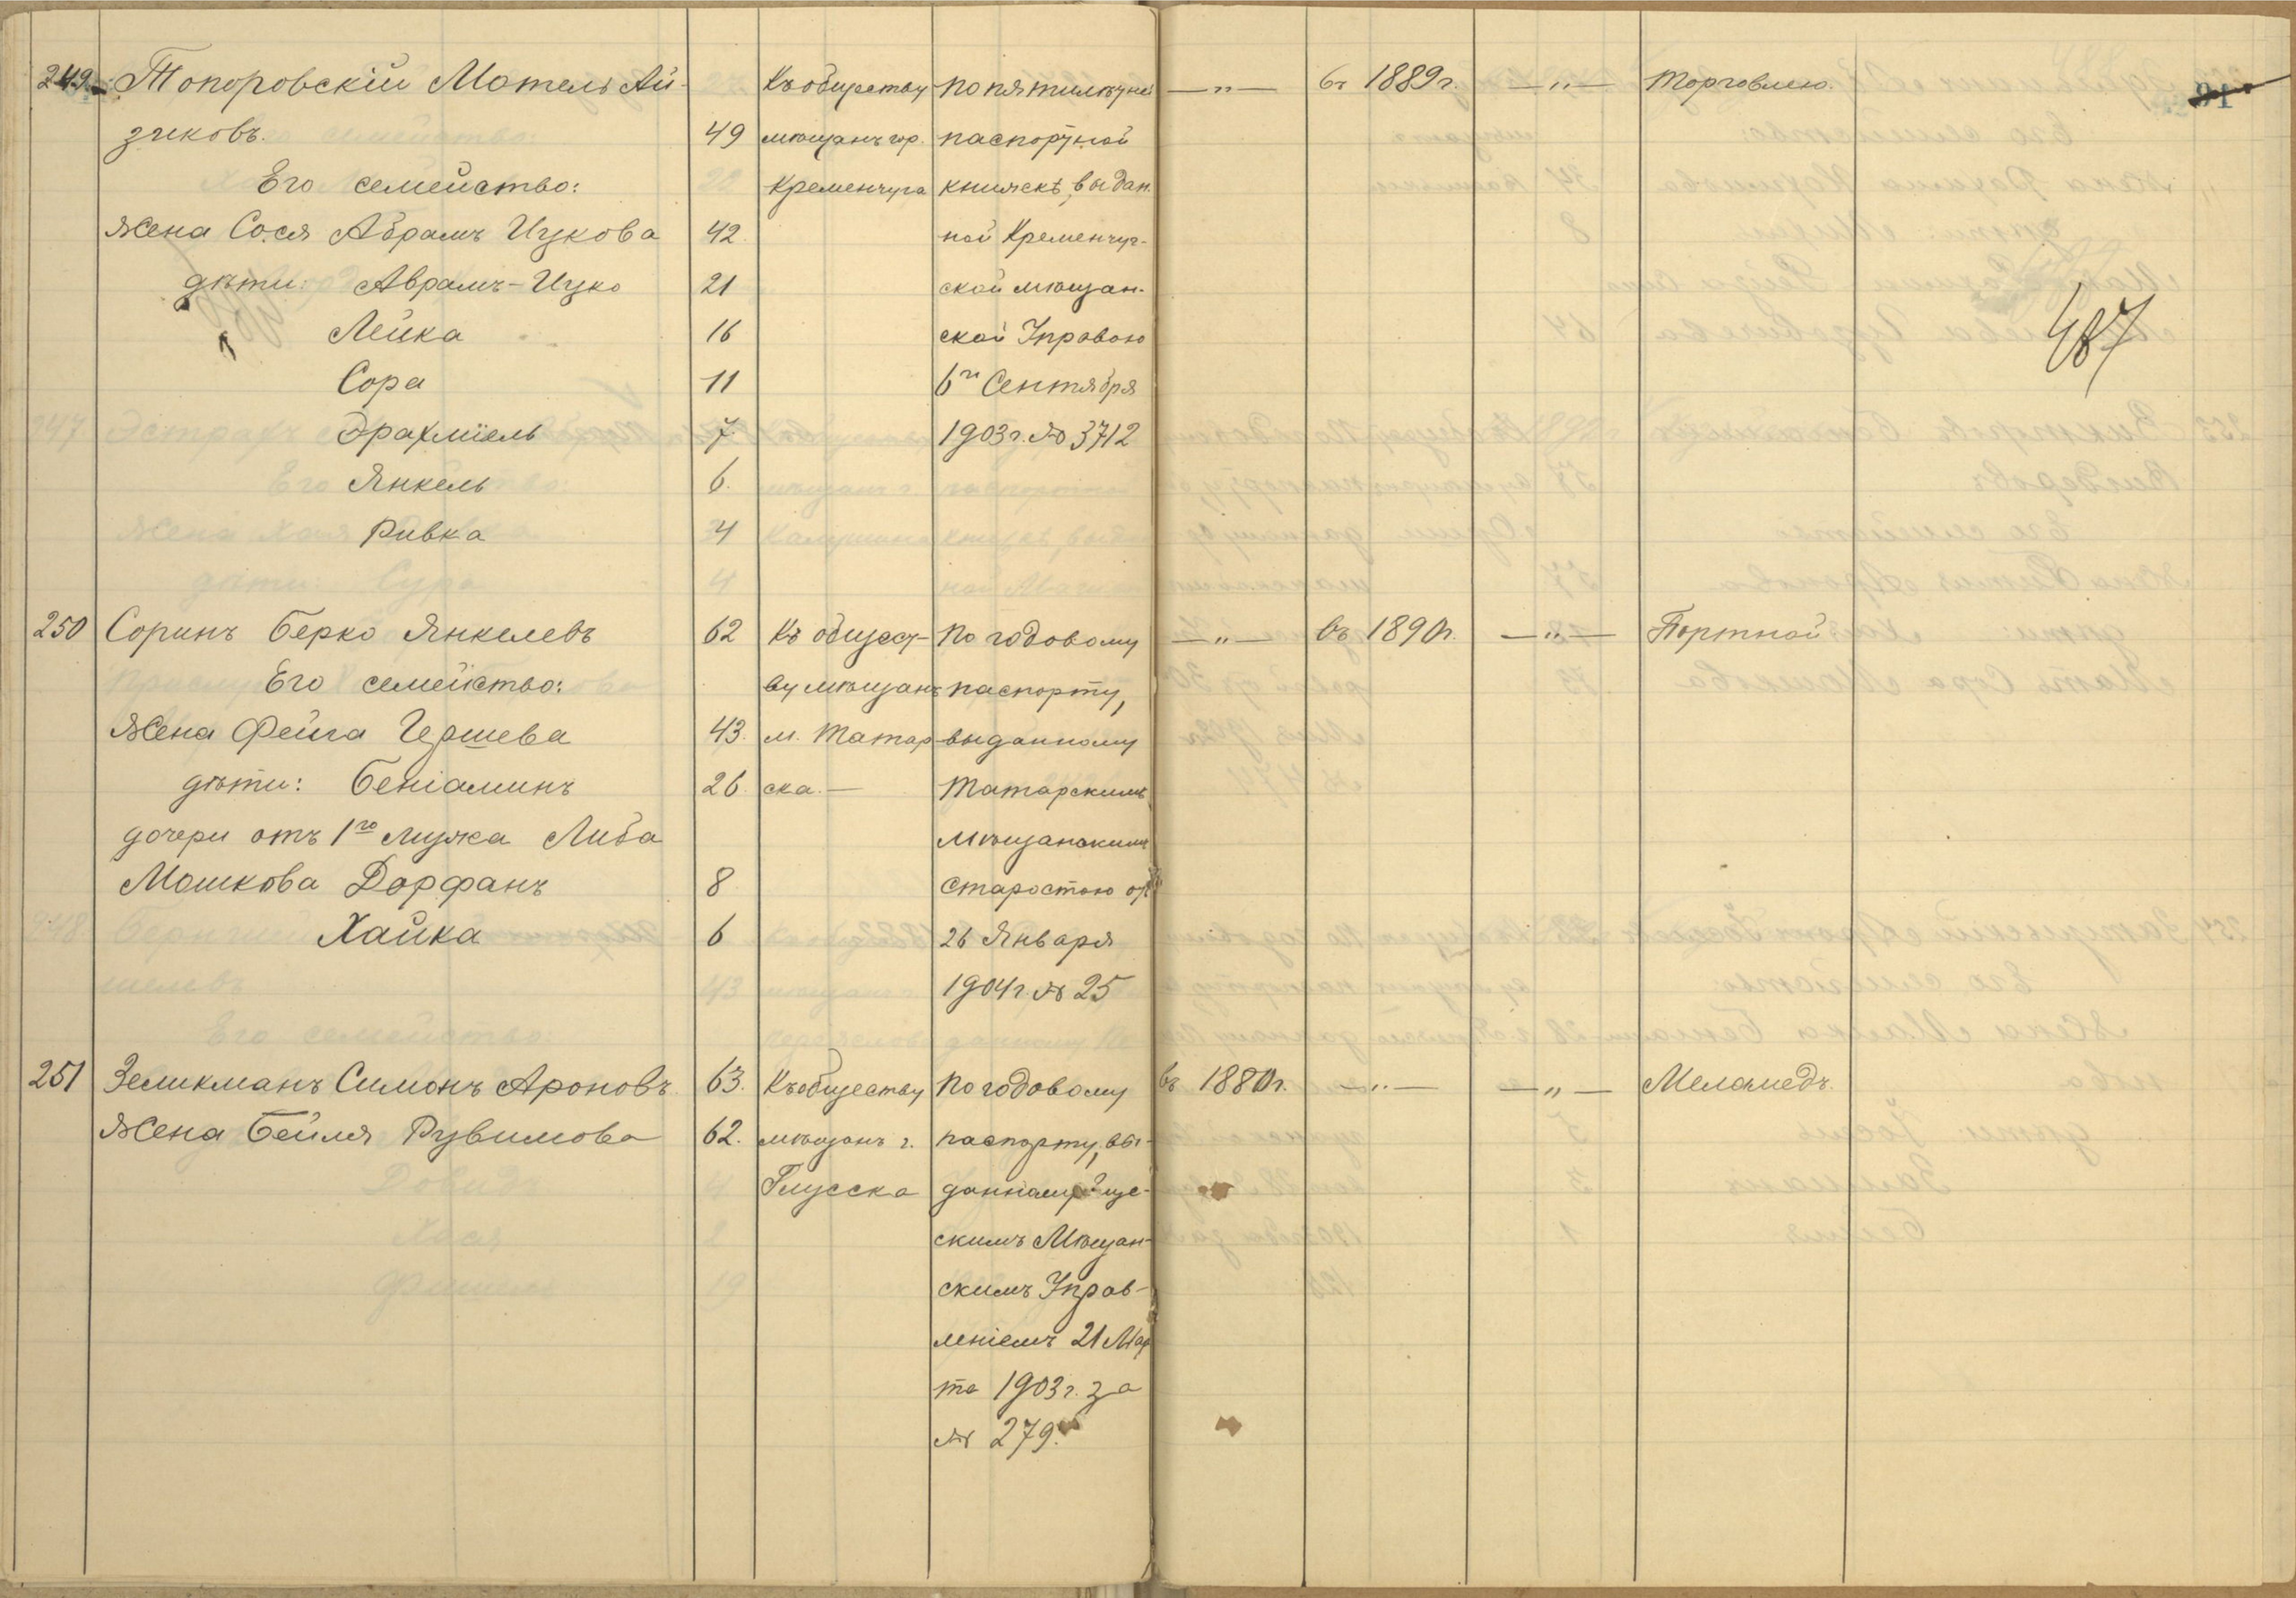 249. Топоровскій Мотель Ай- Къ обществу по пятилѣтней —"— въ 1889 г. —"— Торговлею. 91
зиковъ. 49 мѣщанъ гор. паспортной
Его семейство: Кременчуга книжкѣ, выдан-
Жена Сося Абрамъ Ицкова 42 ной Кременчуг-
дѣти: Аврамъ-Ицко 21 ской мѣщан-
Лейка 16 ской Управою 487
Сора 11 6го Сентября
Ерахміель 7 1903 г. № 3712
Янкель 6.
Ривка 4
250 Соринъ Берко Янкелевъ 62 Къ общест- по годовому —"— въ 1890 г. —"— Портной
Его семейство: ву мѣщанъ паспорту,
Жена Фейга Гершева 43. м. Татар- выданному
дѣти: Беніаминъ 26. ска. — Татарскимъ
дочери отъ 1го мужа Либа мѣщанскимъ
Мошкова Дорфанъ 8 старостою отъ
Хайка 6 26 Января
1904 г. № 25
251 Зеликманъ Симонъ Ароновъ. 63. Къ обществу по годовому въ 1880 г. —"— —"— Меламедъ.
Жена Бейля Рувимова 62. мѣщанъ г. паспорту, вы-
Глусска
скимъ Мѣщан-
скимъ Управ-
леніемъ 21 Мар
та 1903 г. за
№ 279.